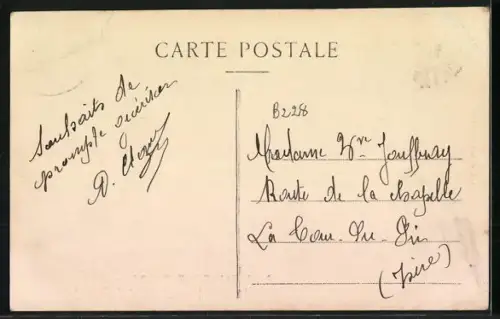 CARTE POSTALE
Souhaits de
prompte guérison
B228
Madame Vve Jouffray
Route de la Chapelle
La Tour-du-Pin
(Isère)